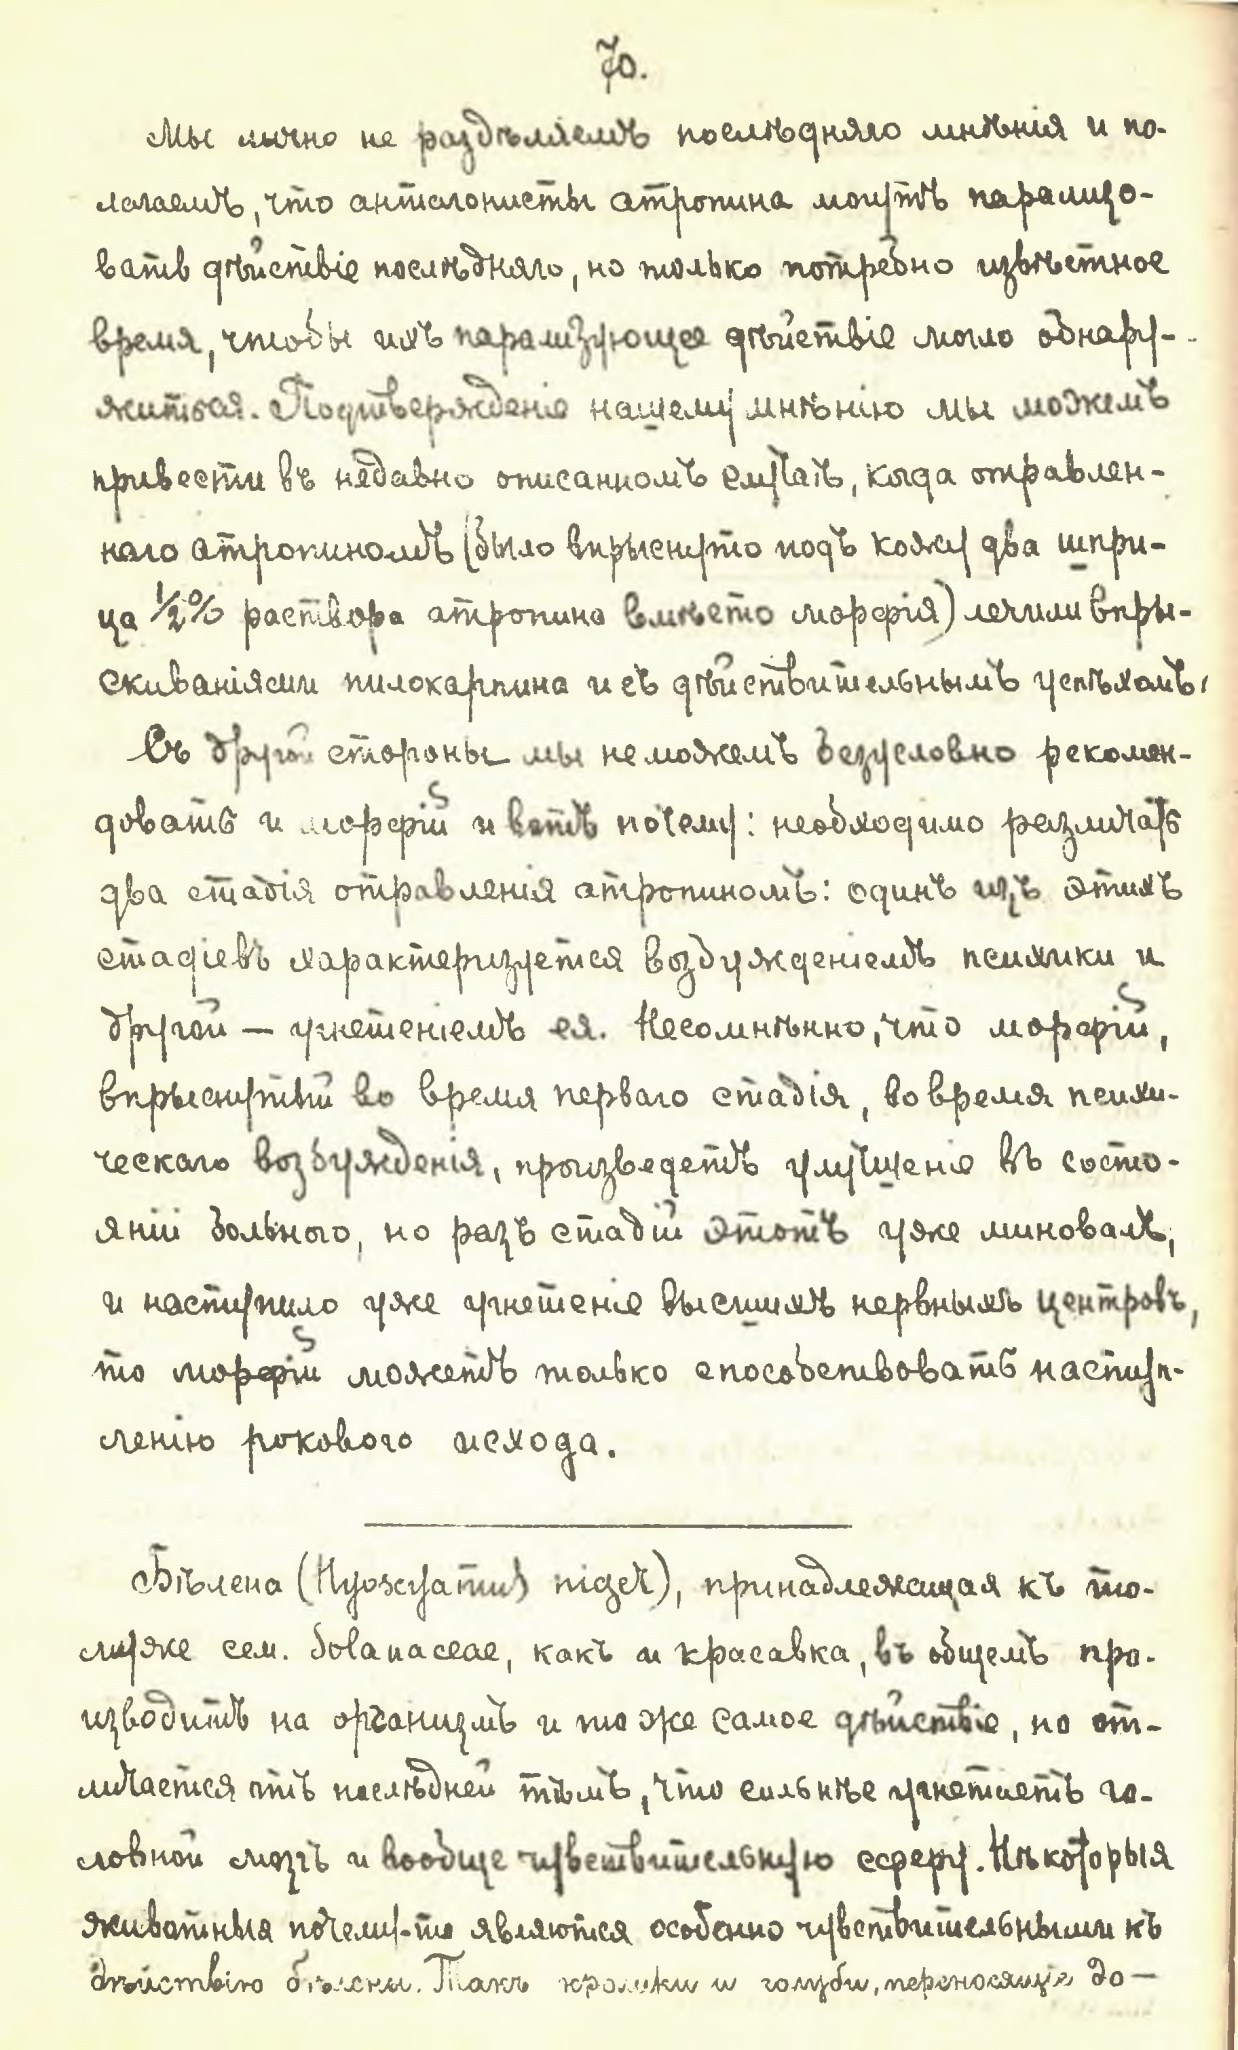 70.
Мы лично не раздѣляемъ послѣдняго мнѣнія и по-
лагаемъ, что антагонисты атропина могутъ парализо-
вать дѣйствіе послѣдняго, но только потребно извѣстное
время, чтобы ихъ парализующее дѣйствіе могло обнару-
житься. Подтвержденіе нашему мнѣнію мы можемъ
привести въ недавно описанномъ случаѣ, когда отравлен-
наго атропиномъ (было впрыснуто подъ кожу два шпри-
ца 1/2% раствора атропина вмѣсто морфія) лечили впры-
скиваніями пилокарпина и съ дѣйствительнымъ успѣхомъ.
Съ другой стороны мы не можемъ безусловно рекомен-
довать и морфій и вотъ почему: необходимо различать
два стадія отравленія атропиномъ: одинъ изъ этихъ
стадіевъ характеризуется возбужденіемъ психики и
другой — угнетеніемъ ея. Несомнѣнно, что морфій,
впрыснутый во время перваго стадія, во время психи-
ческаго возбужденія, произведетъ улучшеніе въ состо-
яніи больного, но разъ стадій этотъ уже миновалъ,
и наступило уже угнетеніе высшихъ нервныхъ центровъ,
то морфій можетъ только способствовать наступ-
ленію рокового исхода.
Бѣлена (Hyoscyamus niger), принадлежащая къ то-
муже сем. Solanaceae, какъ и красавка, въ общемъ про-
изводитъ на организмъ и то же самое дѣйствіе, но от-
личается отъ послѣдней тѣмъ, что сильнѣе угнетаетъ го-
ловной мозгъ и вообще чувствительную сферу. Нѣкоторыя
животныя почему-то являются особенно чувствительными къ
дѣйствію бѣлены. Такъ кролики и голуби, переносящіе до—